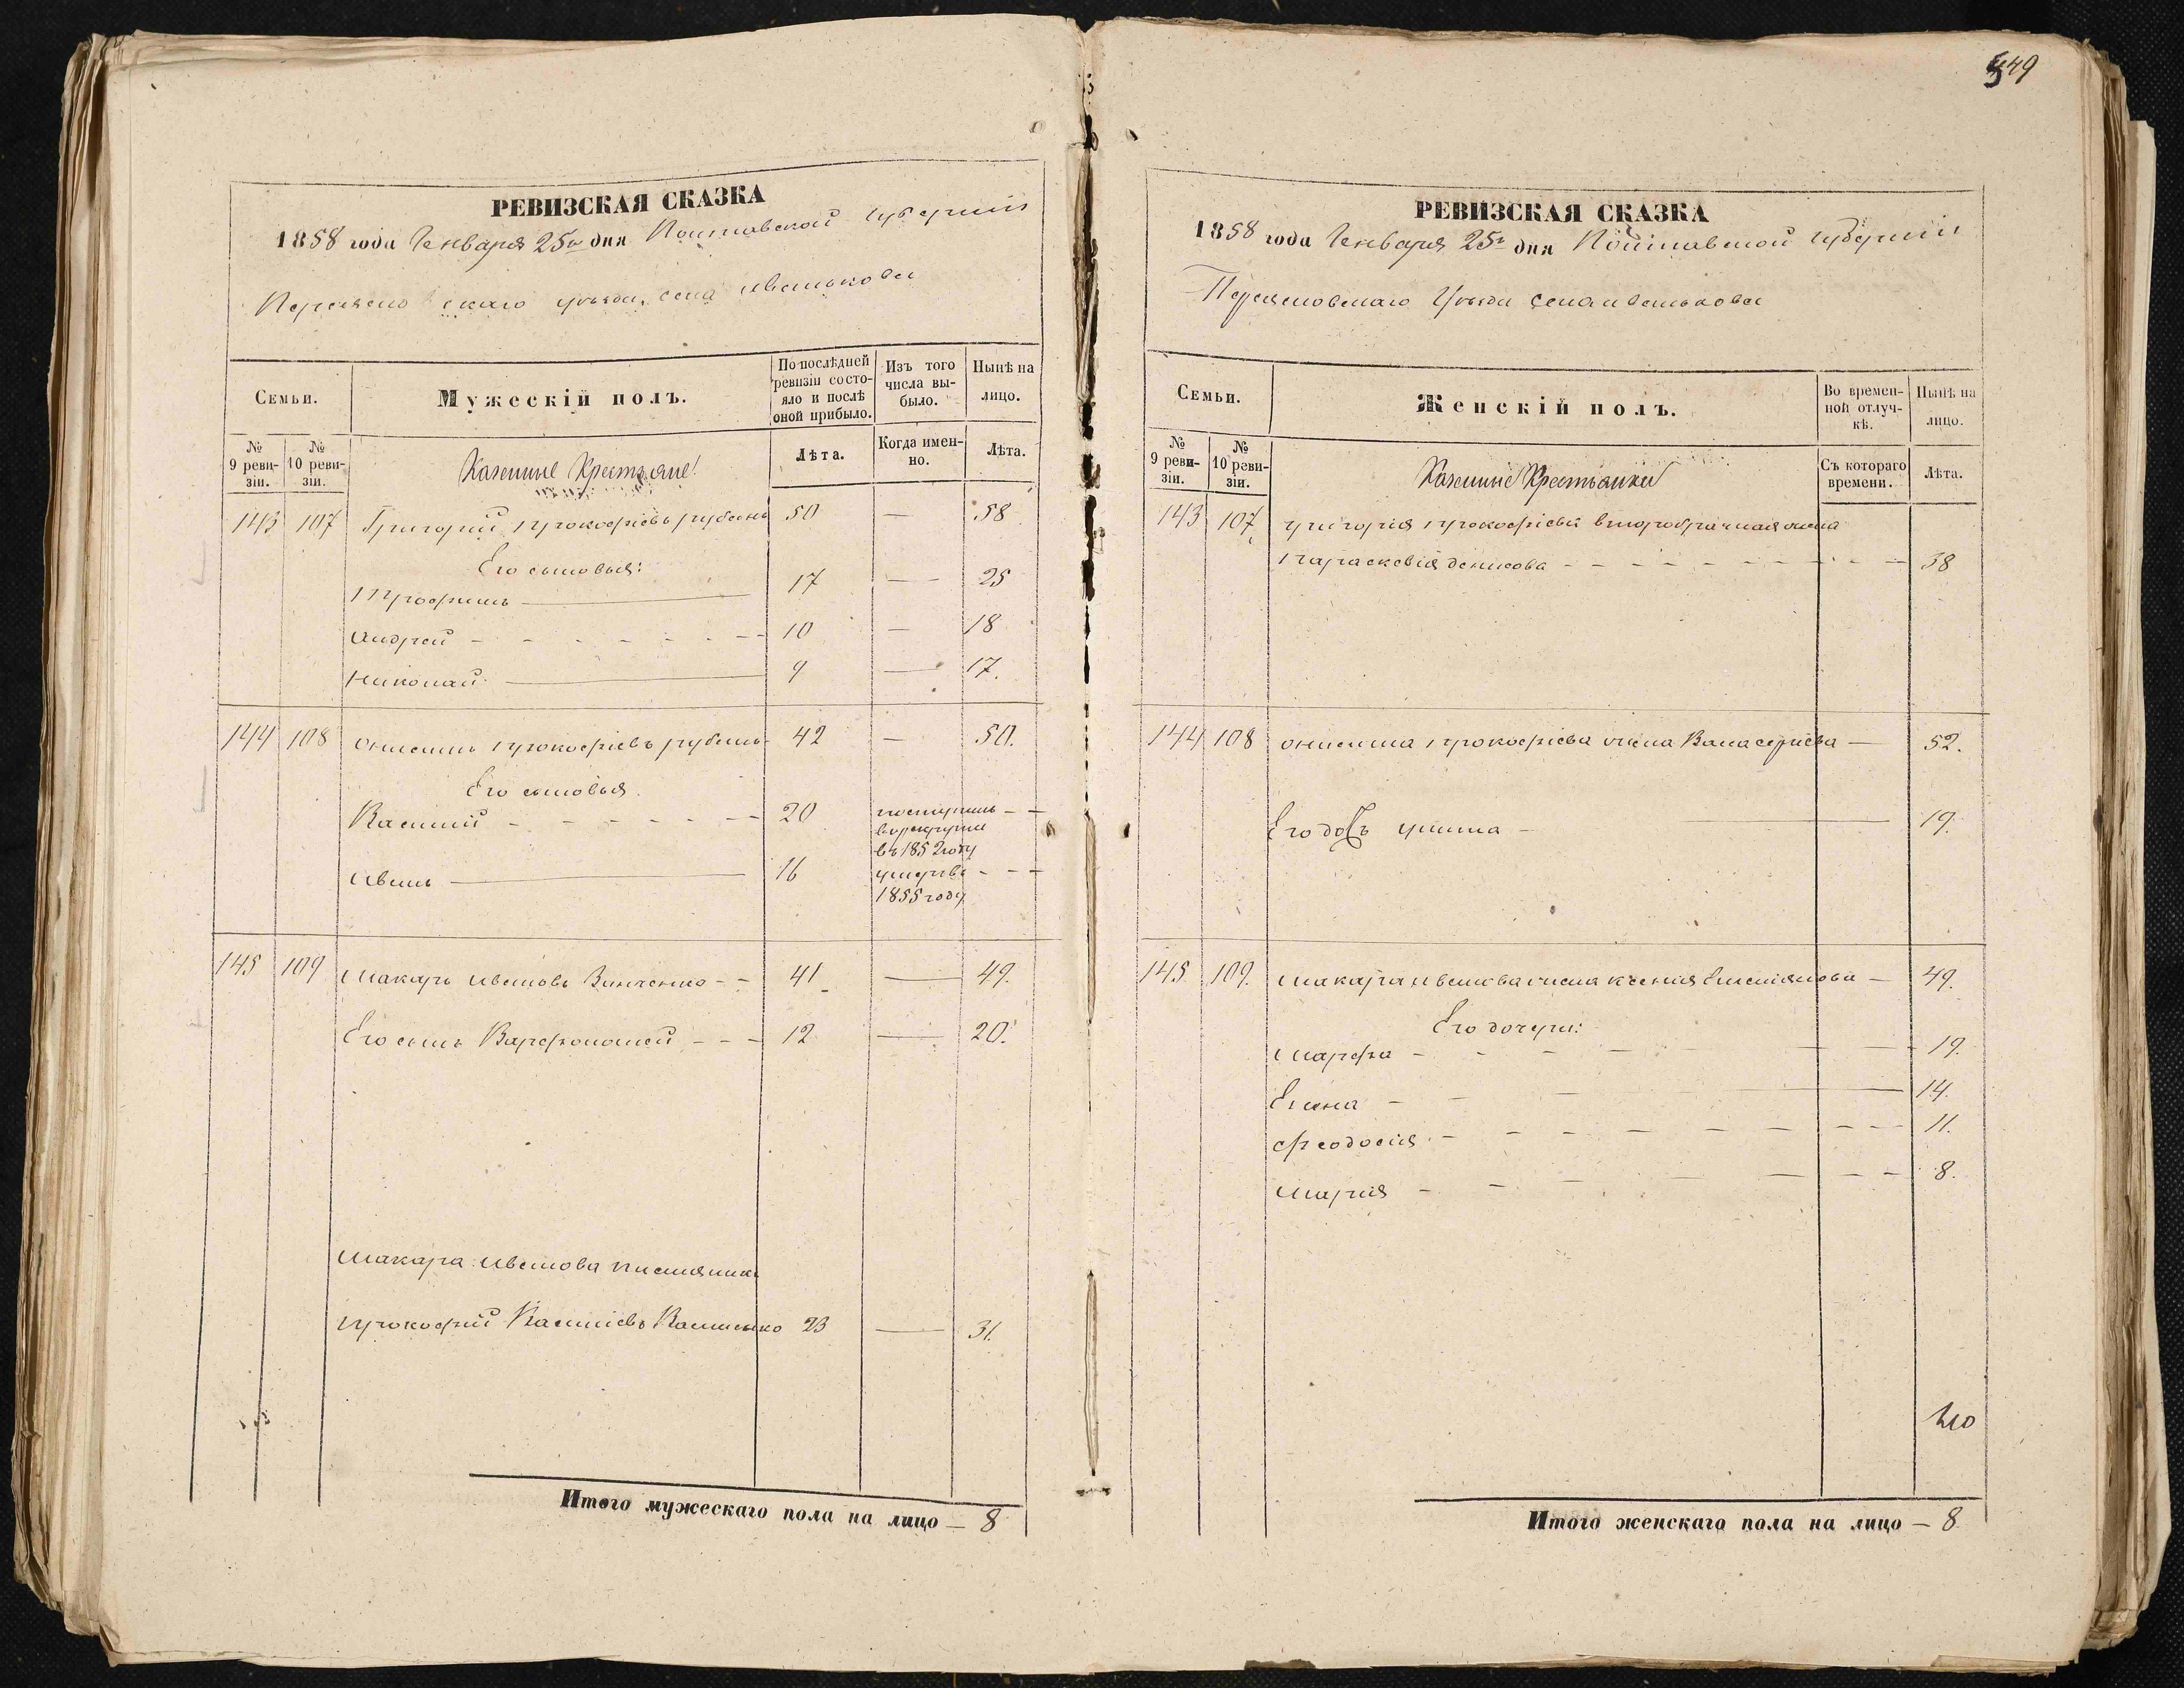 РЕВИЗСКАЯ СКАЗКА
1858 года Генваря 25го дня Полтавской Губернии
Переяславскаго уезда, села Иванькова
Семьи.
Мужескій полъ.
По послѣдней ревизіи состояло и послѣ оной прибыло.
Изъ того числа выбыло.
Нынѣ на лицо.
№ 9 ревизіи.
№ 10 ревизіи.
Казенные Крестьяне!
Лѣта.
Когда именно.
Лѣта.
143 107 Григорий Прокофіевъ рубанъ 50 — 58
Его сыновья:
Трофимъ — 17 — 25
Андрей - - - 10 — 18
Николай — 9 — 17.
144 108 Онисимъ Прокофіевъ рубанъ 42 — 50.
Его сыновья.
Василий - - - 20
поступилъ - -
в рекруты
въ 1852 году
Иванъ — 16
умеръ в - - -
1855 году
145 109 Макаръ Ивановъ Зинченко - - 41 — 49.
Его сынъ Варфоломей - - - 12 — 20.
Макара Иванова племянникъ
Прокофий Василіевъ Василенко 23 — 31.
Итого мужескаго пола на лицо — 8
549
РЕВИЗСКАЯ СКАЗКА
1858 года Генваря 25го дня Полтавской Губернии
Переяславскаго Уезда села Иванькова
Семьи.
Женскій полъ.
Во временной отлучкѣ.
Нынѣ на лицо.
№ 9 ревизіи.
№ 10 ревизіи.
Казенные Крестьянки
Съ котораго времени.
Лѣта.
143 107 Григория Прокофіева второбрачная жена
Параскевия Денисова - - - 38
144 108 Онисима Прокофіева жена — 52.
Его дочь - — 19.
145 109. Макара Иванова жена Ксения Емелиянова — 49.
Его дочери:
Марфа - - - 19.
Елена - - - 14.
Феодосия - - - 11.
Мария - - - 8.
Итого женскаго пола на лицо — 8